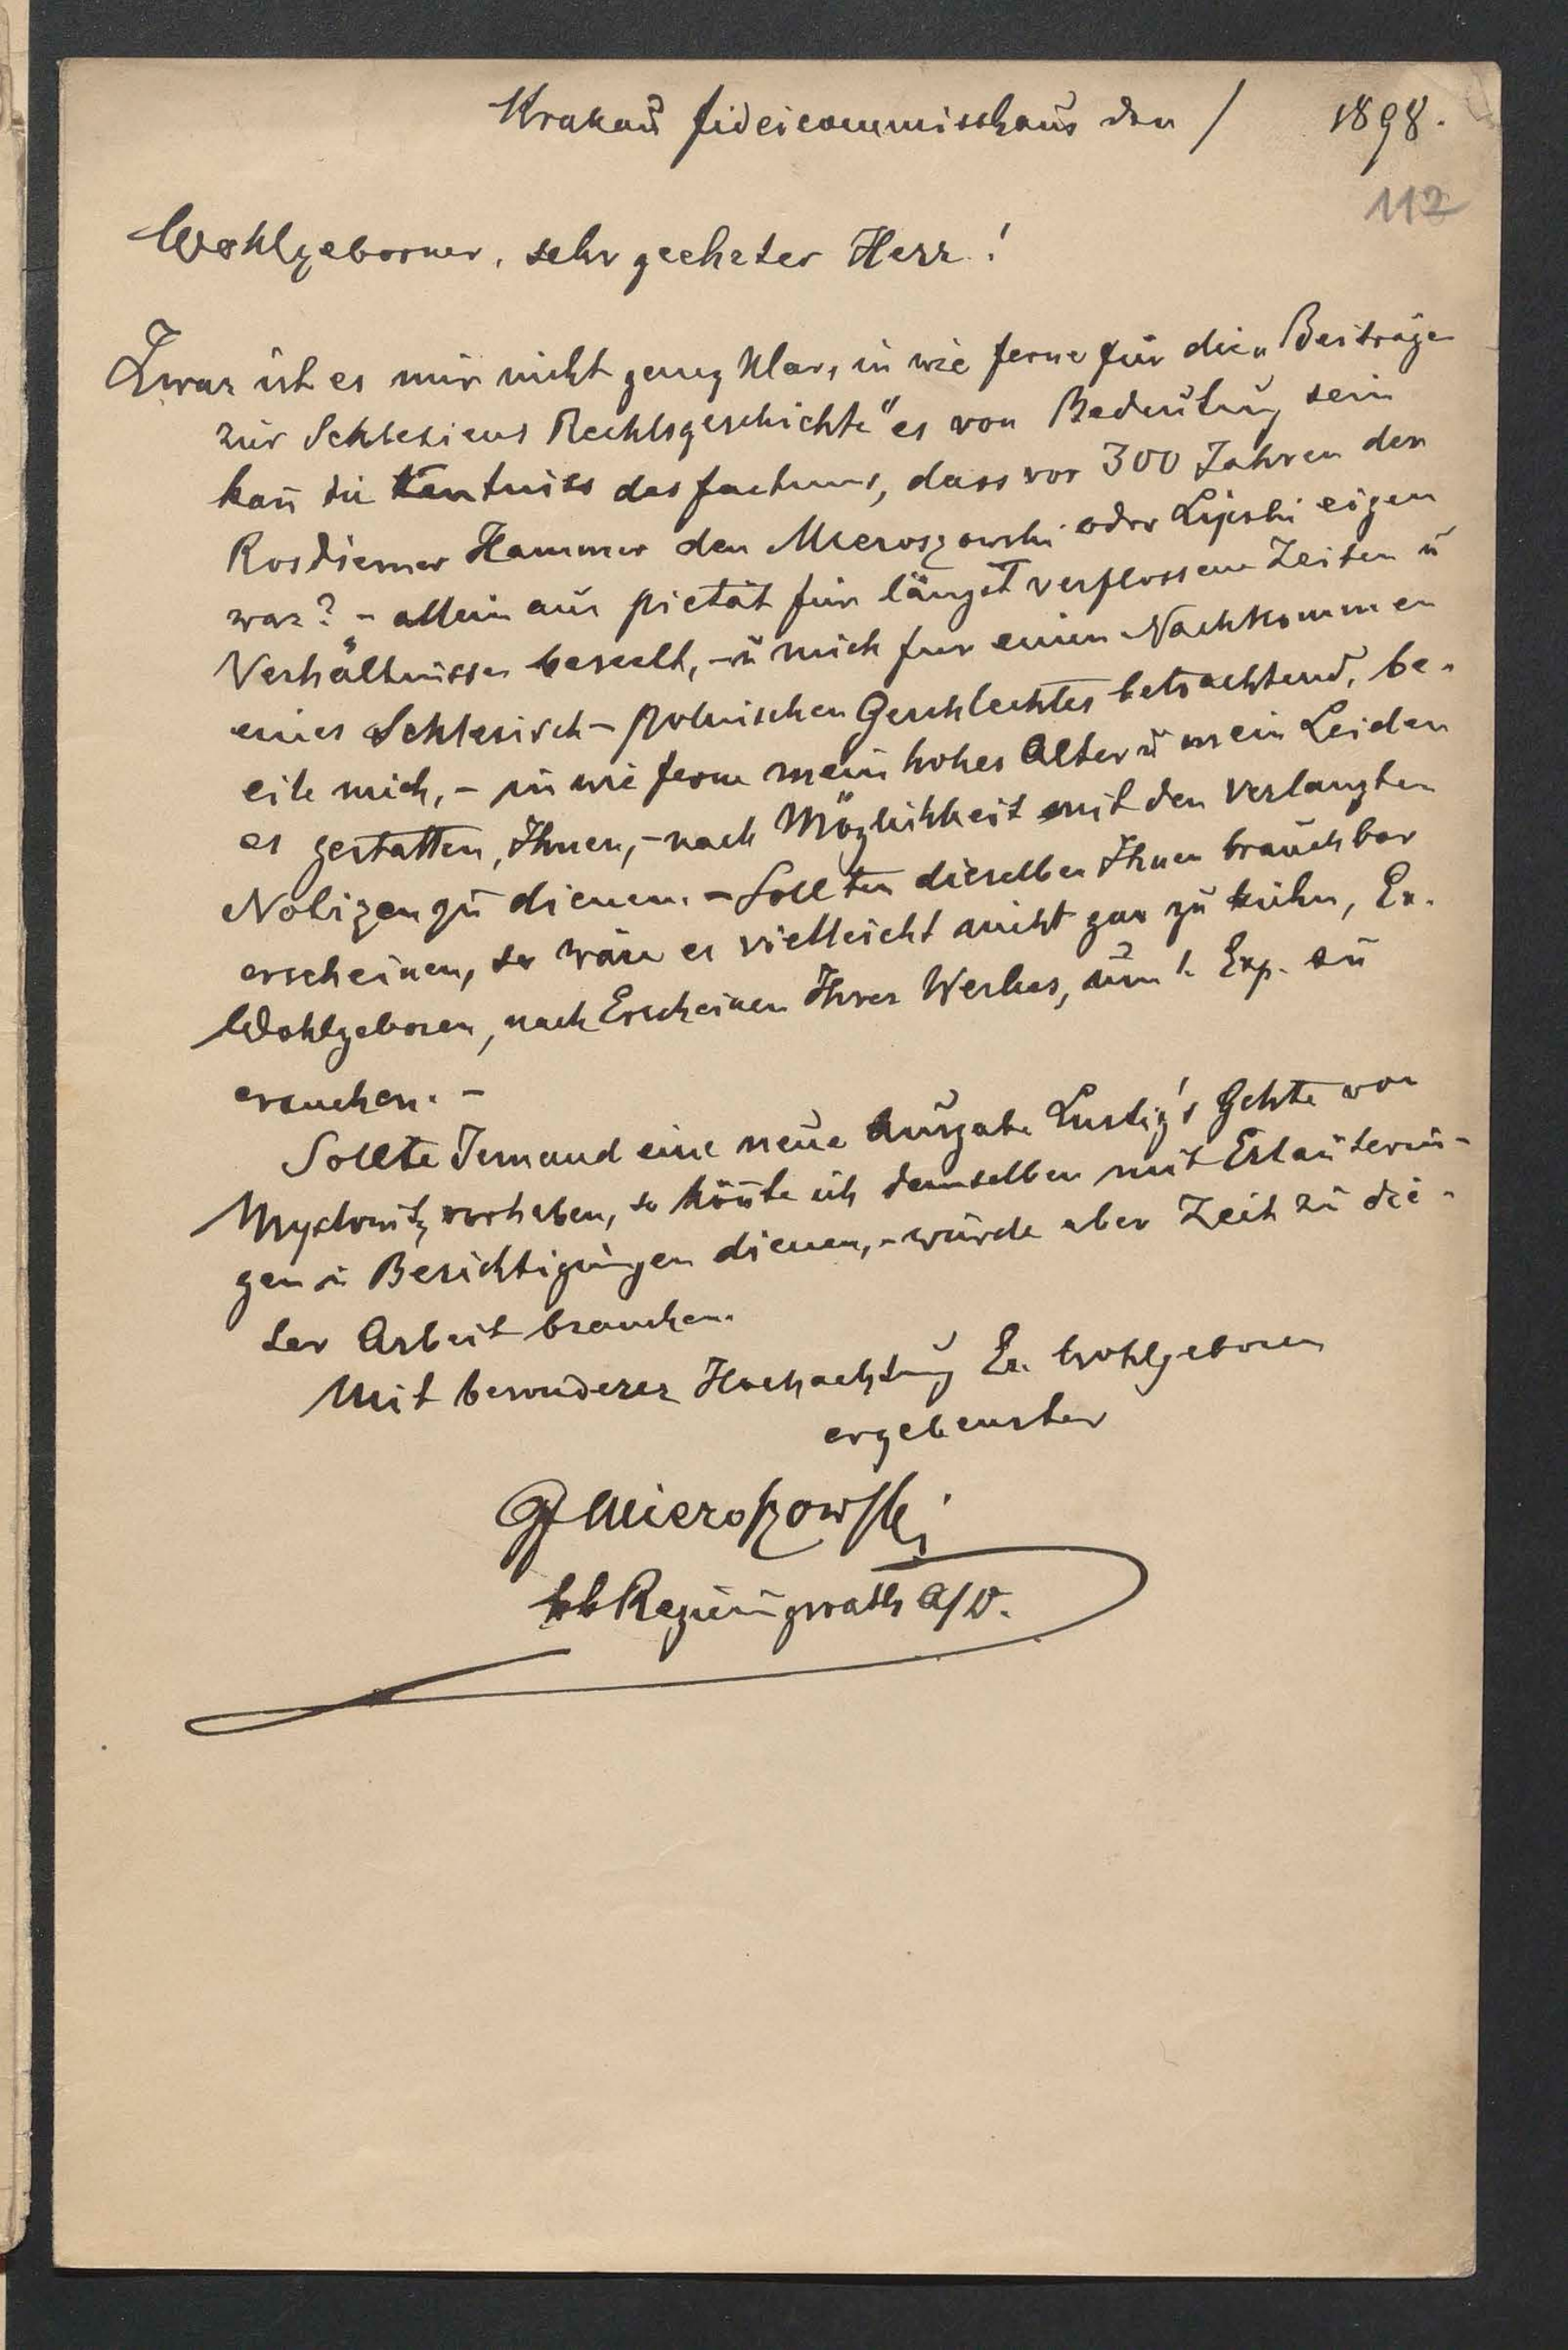 Krakaŭ fideicommisshaus den / 1898.
112
Wohlgeborner, sehr geehrter Herr!
Zwar ist es mir nicht genug klar, in wie ferne für die „Beiträge
zur Schlesiens Rechtsgeschichte" es von Bedeutung sein
kañ die Kentniss des factums, dass vor 300 Jahren der
Rosdziener Hammer den Mieroszowski oder Lipski eigen
war? - allein aus pietät für längst verflossene Zeiten u
Verhältnisse beseelt, - u mich fur einen Nachkommen
eines Schlesisch - polnischen Geschlechtes betrachtend, be-
eile mich, - in wie ferne mein hohes Alter u mein Leiden
es gestatten, Ihnen, - nach Möglichkeit mit den verlangten
Notizen zu dienen. - Sollten dieselben Ihnen brauchbar
erscheinen, so wäre es vielleicht nicht gar zu kühn, Er.
Wohlgeboren, nach Erscheinen Ihres Werkes, um 1. Exp. zu
ersuchen. -
Sollte Jemand eine neue Ausgabe Lustig's Gchte von
Myslowitz vorhaben, so köñte ich demselben mit Erläuterun-
gen u Berichtigungen dienen, - würde aber Zeit zu die-
ser Arbeit brauchen.
Mit besonderer Hochachtung Er. Wohlgeboren
ergebenster
Gf Mieroszowski
kk Regierungsrath a/D.